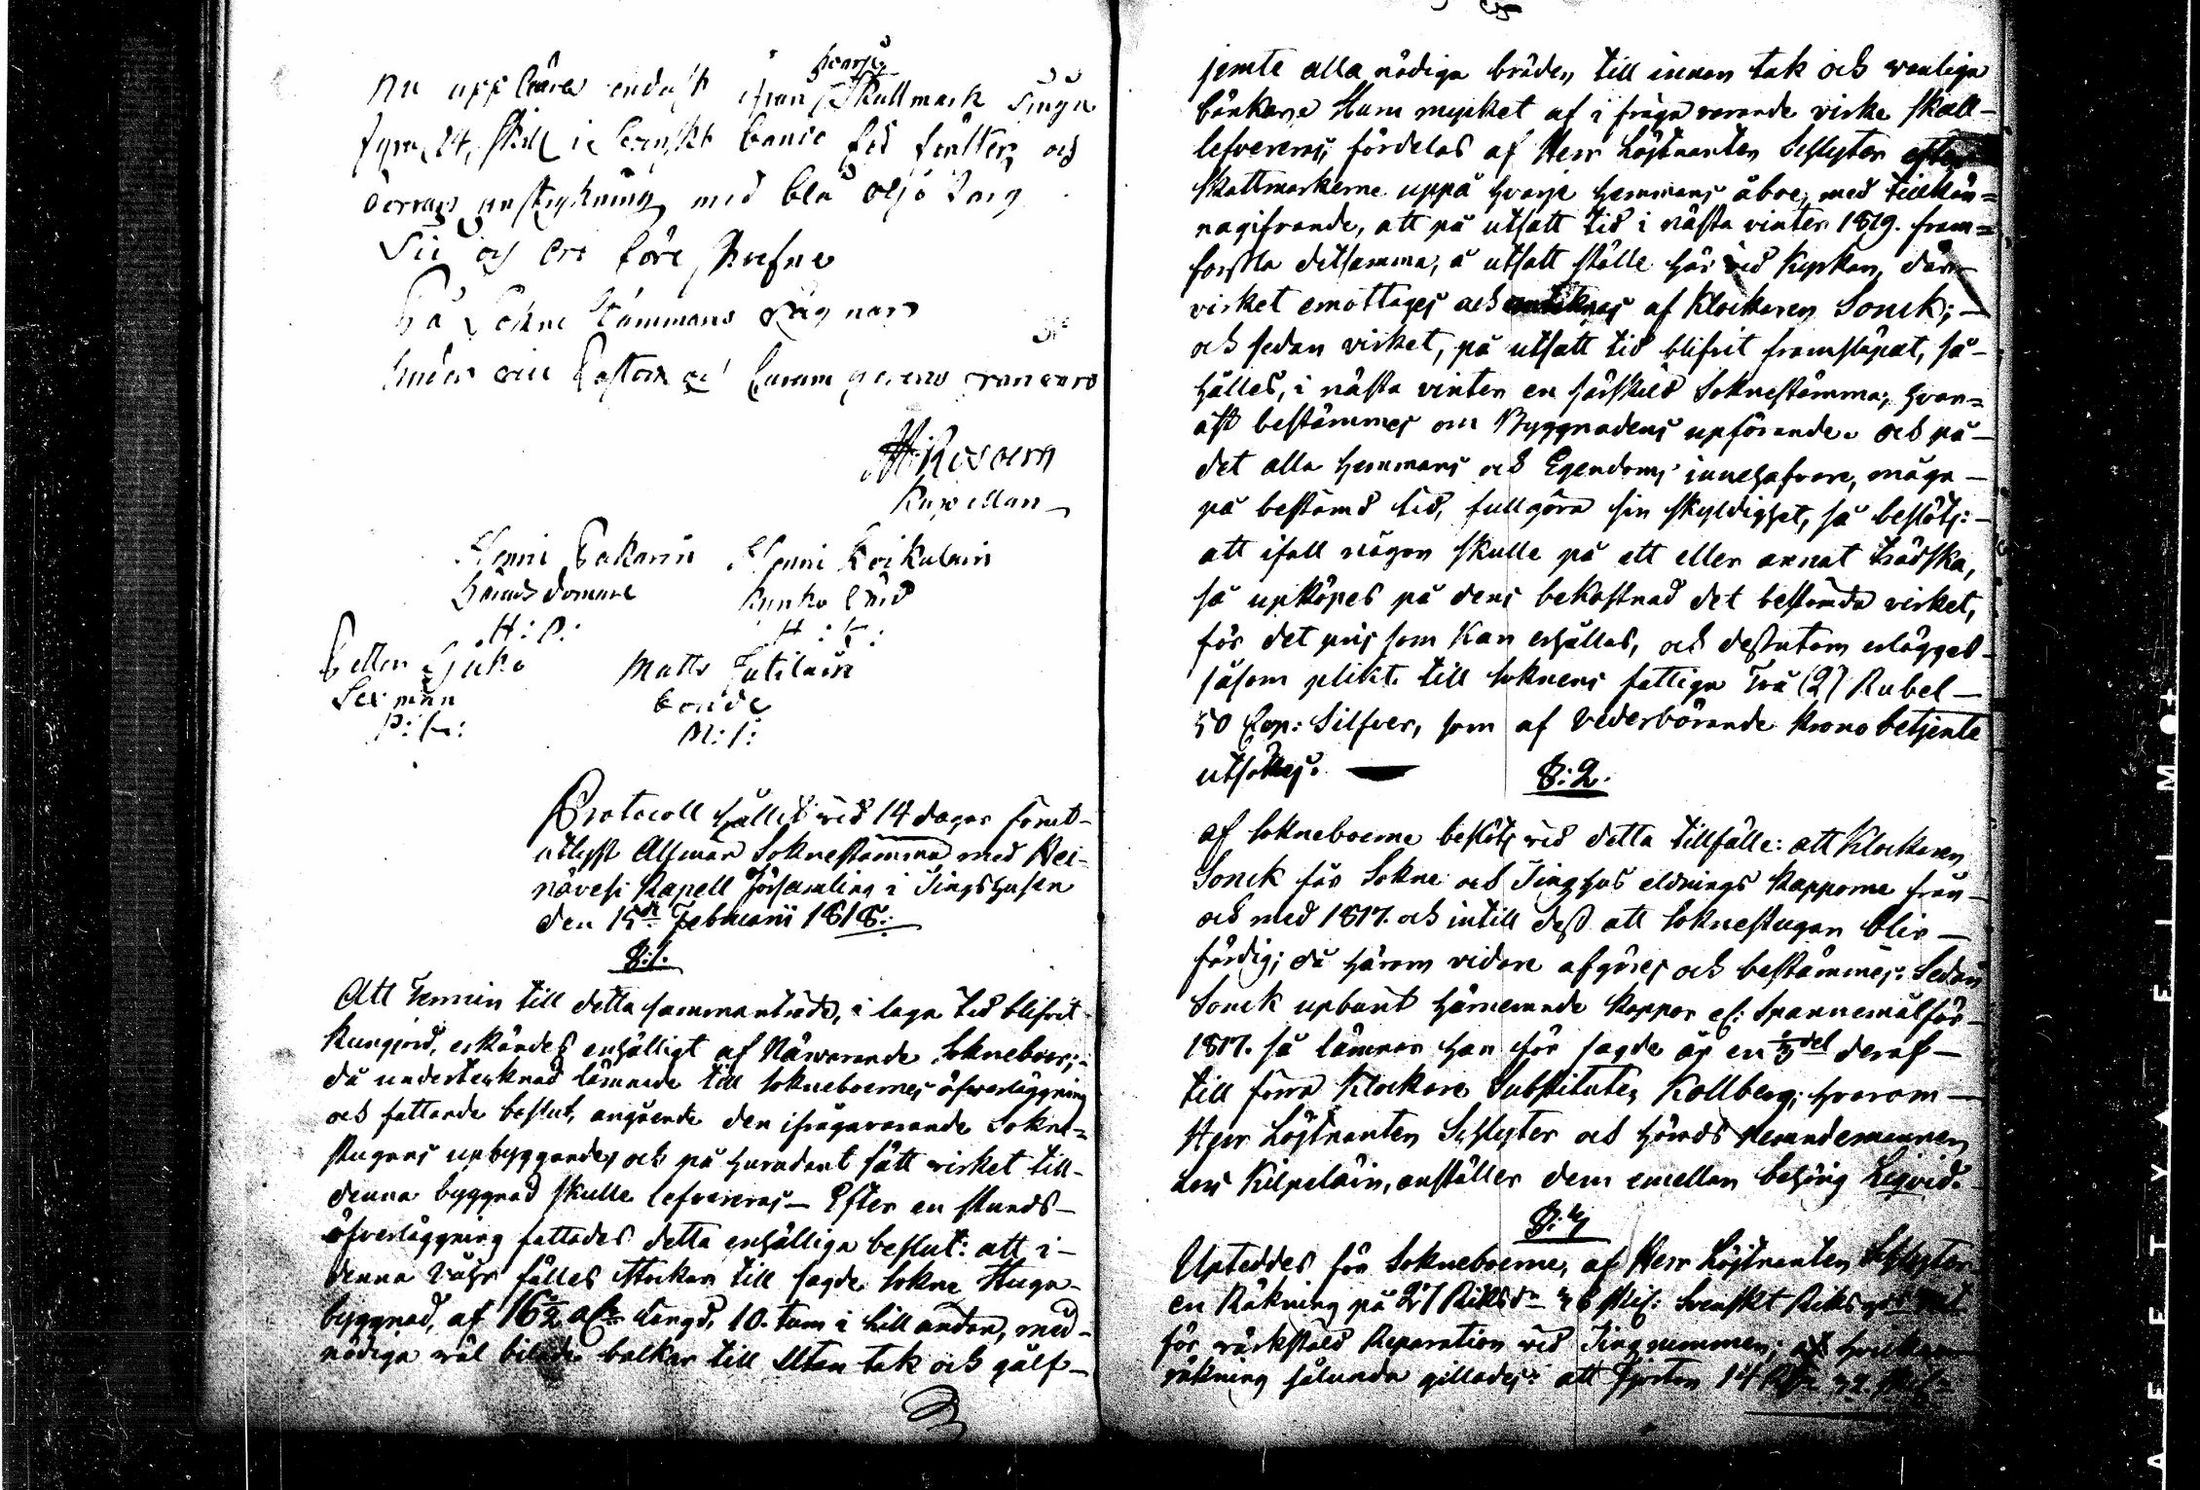 hvarje
nu uppbäres endast ifrån Skattmark Tiugu
fyra 24, skill: i Svenskt banco för fenster och
dörrars anstrykning med blå olje färg
På Sokne Stämmans vägnar
Kapellan
Henric Pakarin Henric Koikalain
Härads domare
H: P: H: K:
Petter
Sexman Matts Tutilain
bonde
P: M: T:
Protocoll hållit vid 14 dagar förut-
utlyst Allmän Soknestämma med Hei-
nävesi Kapell församling i Tingshusen
den 15de Februarii 1818.
§:1.
Att Termin till detta sammanträde, i laga tid blifvit
kungjord, erkändes enhälligt af Närvarande Sokneboer;-
då undertecknad lämnade till Sokneboernes öfverläggning
och fattande beslut, angående den ifrågavarande Sokne=
stugans upbyggande, och på hurudant sätt virket till-
denna byggnad skulle lefvereras— Efter en stunds—
öfverläggning fattades detta enhälliga beslut: att i-
denna Vahr fälles Stockar till sagde Sokne Stuga-
byggnad, af 16½ alns längd, 10. tum i lill ändan, med-
nödiga väl bilade balkar till Utan tak och gålf—
jemte alla nödiga bräder till innan tak och vanliga
bänkar. Huru mycket af i fråga varande virke skall-
lefvereras, fördelas af Herr Löjtnanten Schlyter efter
skattmarkerne uppå hvarje hemmans åboe, med tillkän=
nagifvande, att på utsatt tid i nästa vinter 1819. fram=
forsla detsamma, å utsatt ställe här vid Kyrkan, där—
virket emottages och af Klockaren Sonck;—
och sedan virket, på utsatt tid blifvit framsläpat, så-
hålles, i nästa vinter en särskild Soknestämma, hvar=
äst bestämmes om Byggnadens upförande. och på—
det alla hemmans och Egendoms innehafvare, måga—
på bestämd tid, fullgöra sin skyldighet, så beslöts:—
att ifall någon skulle på ett eller annat trädska,
så upköpes på dens bekostnad det bestämda virket,
för det pris som kan erhållas, och dessutom erlägges
såsom plikt till soknens fattiga Två (2) Rubel—
50 Cop: Silfver, som af Vederbörande Krono betjente
utsökes.
§:2.
af Sokneboerne beslöts vid detta tillfälle: att Klockaren
Sonck får Sokne och Tinghus eldnings kapporne från—
och med 1817. och intill dess att Soknestugan blir—
färdig; då härom vidare afgöres och bestämmes. Sedan
Sonck upburit härnämnde kappar el: Spannemål för
1817. så lämnar han för sagde år en ⅓del deraf—
till förra Klockare Substituten Kollberg; hvarom—
Herr Löjtnanten Schlyter och Härads Nämndemannen
Lars Kilpeläin, anställer dem emellan behörig Liqvid.
§:3
Upteddes för Sokneboerne, af Herr Löjtnanten Schlyter
en Räkning på 27 Riksdr 36 skil: Svenskt Riksgäld
för värkstäld Reparation vid Tingrummen;
räkning sålunda gillades: att Fjorton 14